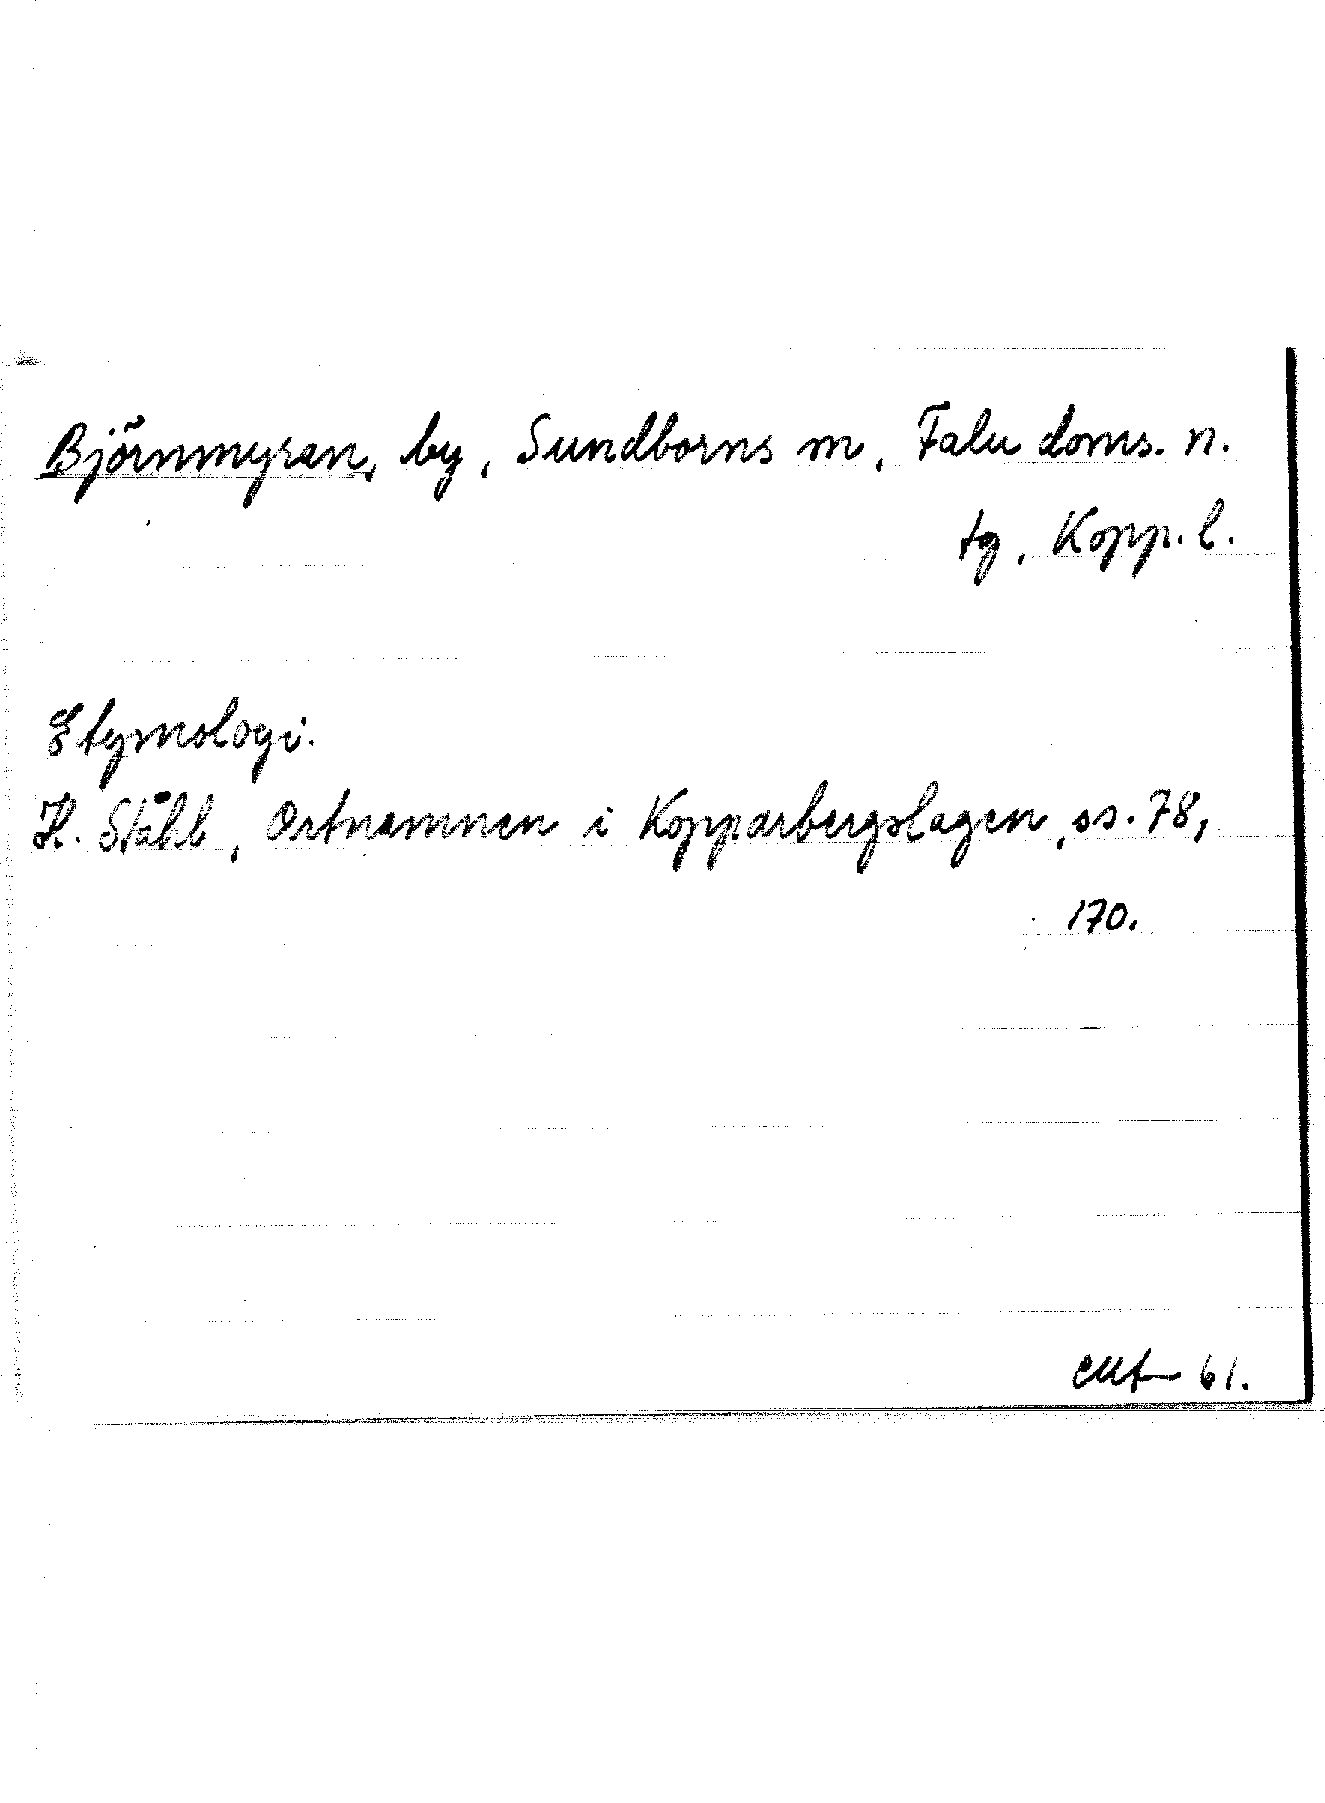 Björnmyran, by, Sundborns m, Falu doms. n.
tg, Kopp. l.
Etymologi.
H. Ståhl, Ortnamnen i Kopparbergslagen, ss. 78,
170.
61.